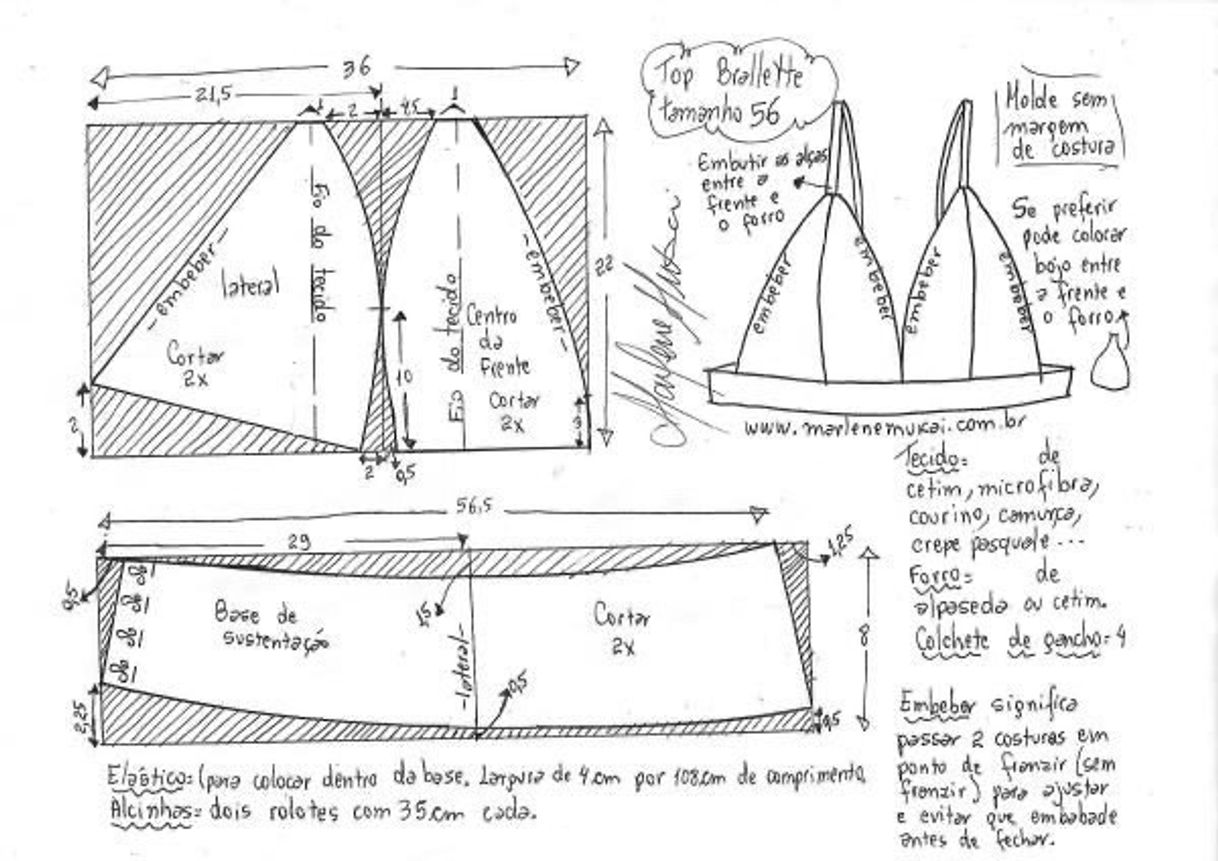 36
21,5
1
2
4,5
1
Fio do tecido
- embeber -
lateral
Cortar
2x
2
2
0,5
10
Fio do tecido
Centro
da
Frente
Cortar
2x
- embeber -
3
22
Top Brallette
tamanho 56
Embutir as alças
entre a
frente e
o forro
embeber
embeber
embeber
embeber
Molde sem
margem
de costura
Se preferir
pode colocar
bojo entre
a frente e
o forro
Marlene Mukai
www.marlenemukai.com.br
56,5
29
0,5
1,5
1,25
Base de
sustentação
-lateral-
Cortar
2x
8
0,5
0,5
2,25
Tecido= de
cetim, microfibra,
courino, camurça,
crepe pasquale...
Forro= de
alpaseda ou cetim.
Colchete de gancho= 4
Embeber significa
passar 2 costuras em
ponto de franzir (sem
franzir) para ajustar
e evitar que embabade
antes de fechar.
Elástico= (para colocar dentro da base. Largura de 4.cm por 108.cm de comprimento.
Alcinhas= dois rolotes com 35.cm cada.